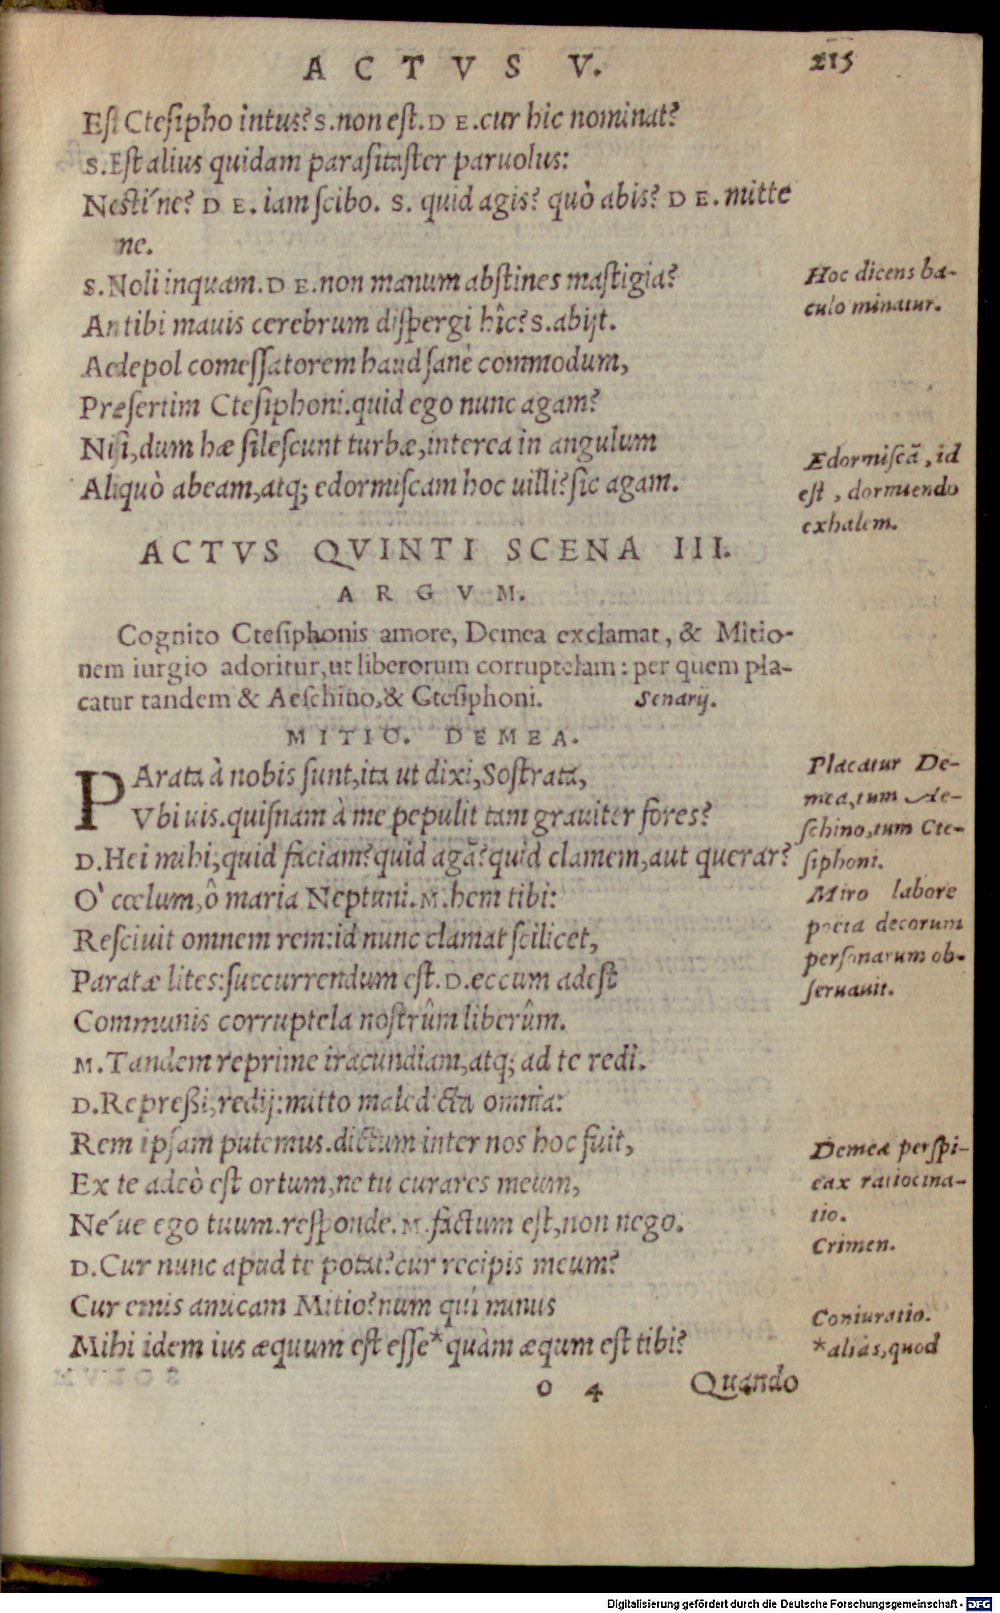 ACTVS V.
215
Est Ctesipho intus? S. non est. DE. cur hic nominat?
S. Est alius quidam parasitaster paruolus:
Nesti'ne? DE. iam scibo. S. quid agis? quò abis? DE. mitte
me.
S. Noli inquam. DE. non manum abstines mastigia?
An tibi mauis cerebrum dispergi hîc? S. abijt.
Aedepol comessatorem haud sanè commodum,
Presertim Ctesiphoni. quid ego nunc agam?
Nisi, dum hæ silescunt turbæ, interea in angulum
Aliquò abeam, atq; edormiscam hoc uilli? sic agam.
Hoc dicens ba-
culo minatur.
Edormiscã, id
est, dormiendo
exhalem.
ACTVS QVINTI SCENA III.
ARGVM.
Cognito Ctesiphonis amore, Demea exclamat, & Mitio-
nem iurgio adoritur, ut liberorum corruptelam: per quem pla-
catur tandem & Aeschino, & Ctesiphoni. Senarij.
MITIO. DEMEA.
PArata à nobis sunt, ita ut dixi, Sostrata,
Vbi uis. quisnam à me pepulit tam grauiter fores?
D. Hei mihi, quid faciam? quid agã? quid clamem, aut querar?
O' cœlum, ô maria Neptuni. M. hem tibi:
Resciuit omnem rem: id nunc clamat scilicet,
Paratæ lites: succurrendum est. D. eccum adest
Communis corruptela nostrûm liberûm.
M. Tandem reprime iracundiam, atq; ad te redi.
D. Repreßi, redij: mitto maledicta omnia:
Rem ipsam putemus. dictum inter nos hoc fuit,
Ex te adeò est ortum, ne tu curares meum,
Ne'ue ego tuum. responde. M. factum est, non nego.
D. Cur nunc apud te potat? cur recipis meum?
Cur emis amicam Mitio? num qui minus
Mihi idem ius æquum est esse* quàm æqum est tibi?
Placatur De-
mea, tum Ae-
schino, tum Cte-
siphoni.
Miro labore
poeta decorum
personarum ob-
seruauit.
Demeæ perspi-
cax ratiocina-
tio.
Crimen.
Coniuratio.
*aliàs, quod
o 4
Quando
Digitalisierung gefördert durch die Deutsche Forschungsgemeinschaft - DFG